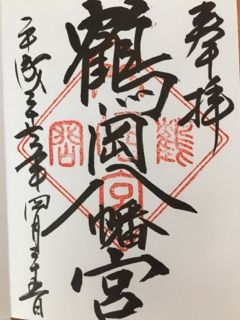 奉拝
鶴岡八幡宮
平成二十六年四月二十五日
鶴
岡
宮